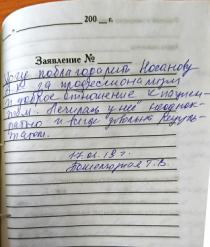 200 г.
Заявление №
Хочу поблагодарить Носанову
за профессионализм
и доброе отношение к пациен-
там. Лечилась у неё неоднок-
ратно и всегда довольна резуль-
татом.
17.01.19 г.